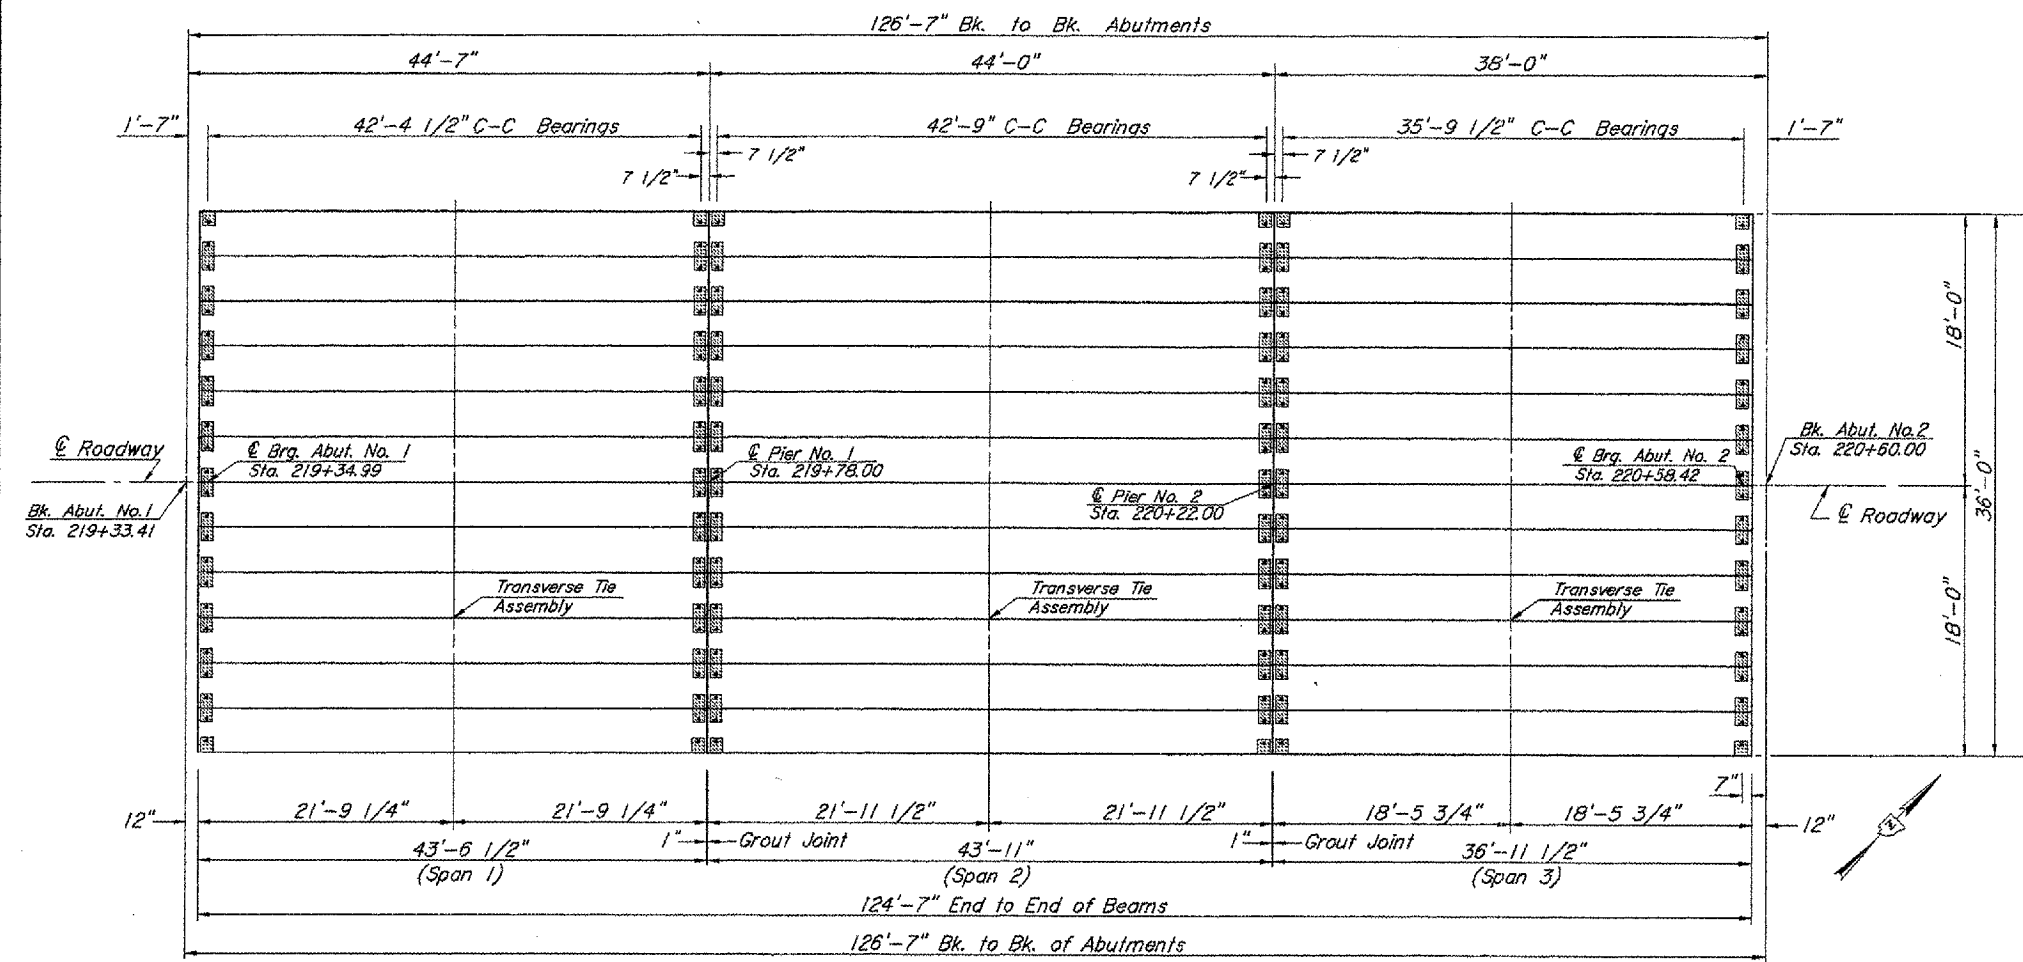 126'-7" Bk. to Bk. Abutments
44'-7"
44'-0"
38'-0"
1'-7"
42'-4 1/2" C-C Bearings
42'-9" C-C Bearings
35'-9 1/2" C-C Bearings
1'-7"
7 1/2"
7 1/2"
7 1/2"
7 1/2"
18'-0"
℄ Roadway
℄ Brg. Abut. No. 1
Sta. 219+34.99
℄ Pier No. 1
Sta. 219+78.00
℄ Brg. Abut. No. 2
Sta. 220+58.42
Bk. Abut. No.2
Sta. 220+60.00
36'-0"
Bk. Abut. No.1
Sta. 219+33.41
℄ Pier No. 2
Sta. 220+22.00
℄ Roadway
Transverse Tie
Assembly
Transverse Tie
Assembly
Transverse Tie
Assembly
18'-0"
7"
12"
21'-9 1/4"
21'-9 1/4"
21'-11 1/2"
21'-11 1/2"
18'-5 3/4"
18'-5 3/4"
12"
1"
Grout Joint
1"
Grout Joint
43'-6 1/2"
(Span 1)
43'-11"
(Span 2)
36'-11 1/2"
(Span 3)
Z
124'-7" End to End of Beams
126'-7" Bk. to Bk. of Abutments